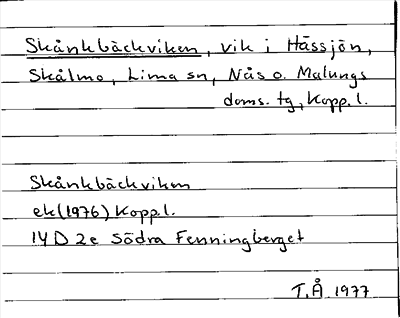 Skånkbäckviken, vik i Hässjön,
Skålmo, Lima sn, Nås o. Malungs
doms. tg, Kopp. l.
Skånkbäckviken
ek (1976) Kopp. l.
14 D 2e Södra Fenningberget
T. Å 1977